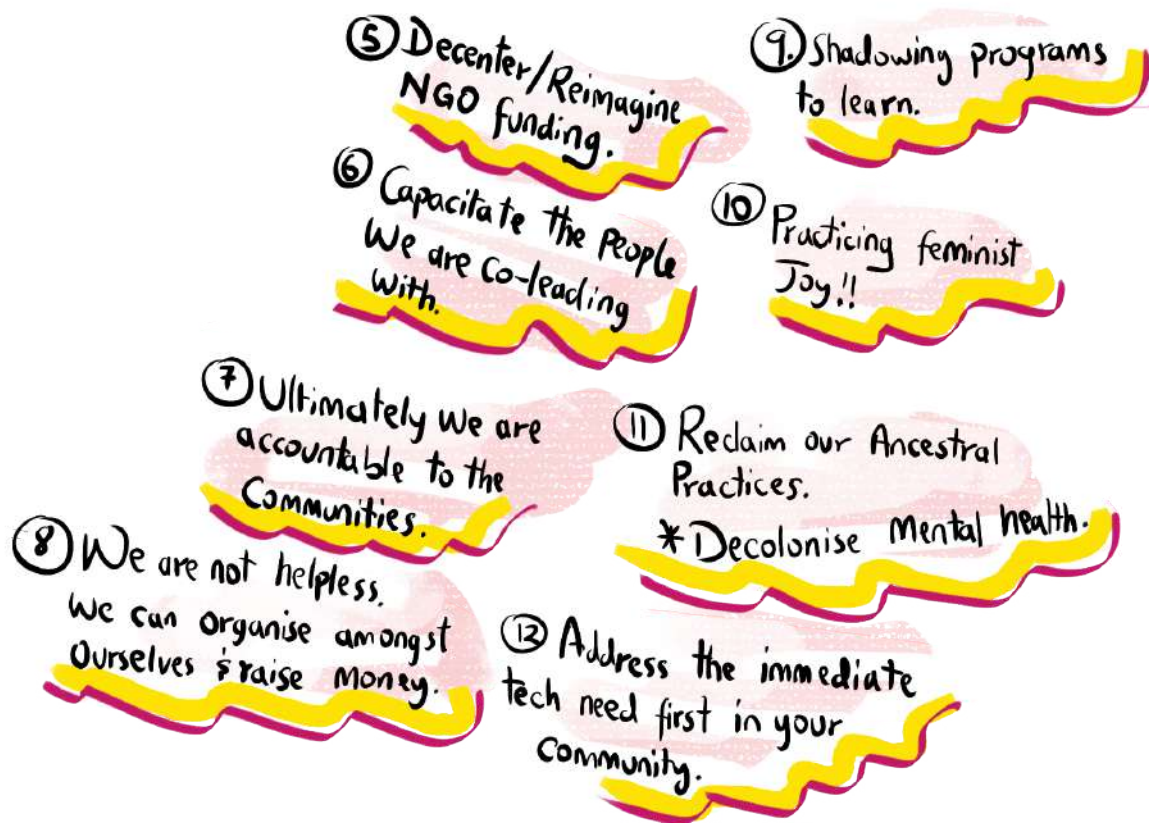 ⑤ Decenter/Reimagine
NGO funding.
⑥ Capacitate the people
We are co-leading
with.
⑦ Ultimately we are
accountable to the
Communities.
⑧ We are not helpless.
We can organise amongst
Ourselves & raise money.
⑨. Shadowing programs
to learn.
⑩ Practicing feminist
Joy!!
⑪ Reclaim our Ancestral
Practices.
*Decolonise Mental health.
⑫ Address the immediate
tech need first in your
Community.